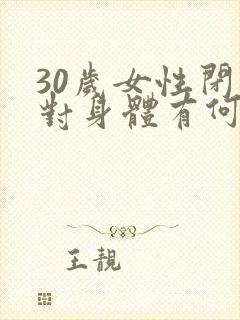 30歲女性閉
對身體有何
王靚